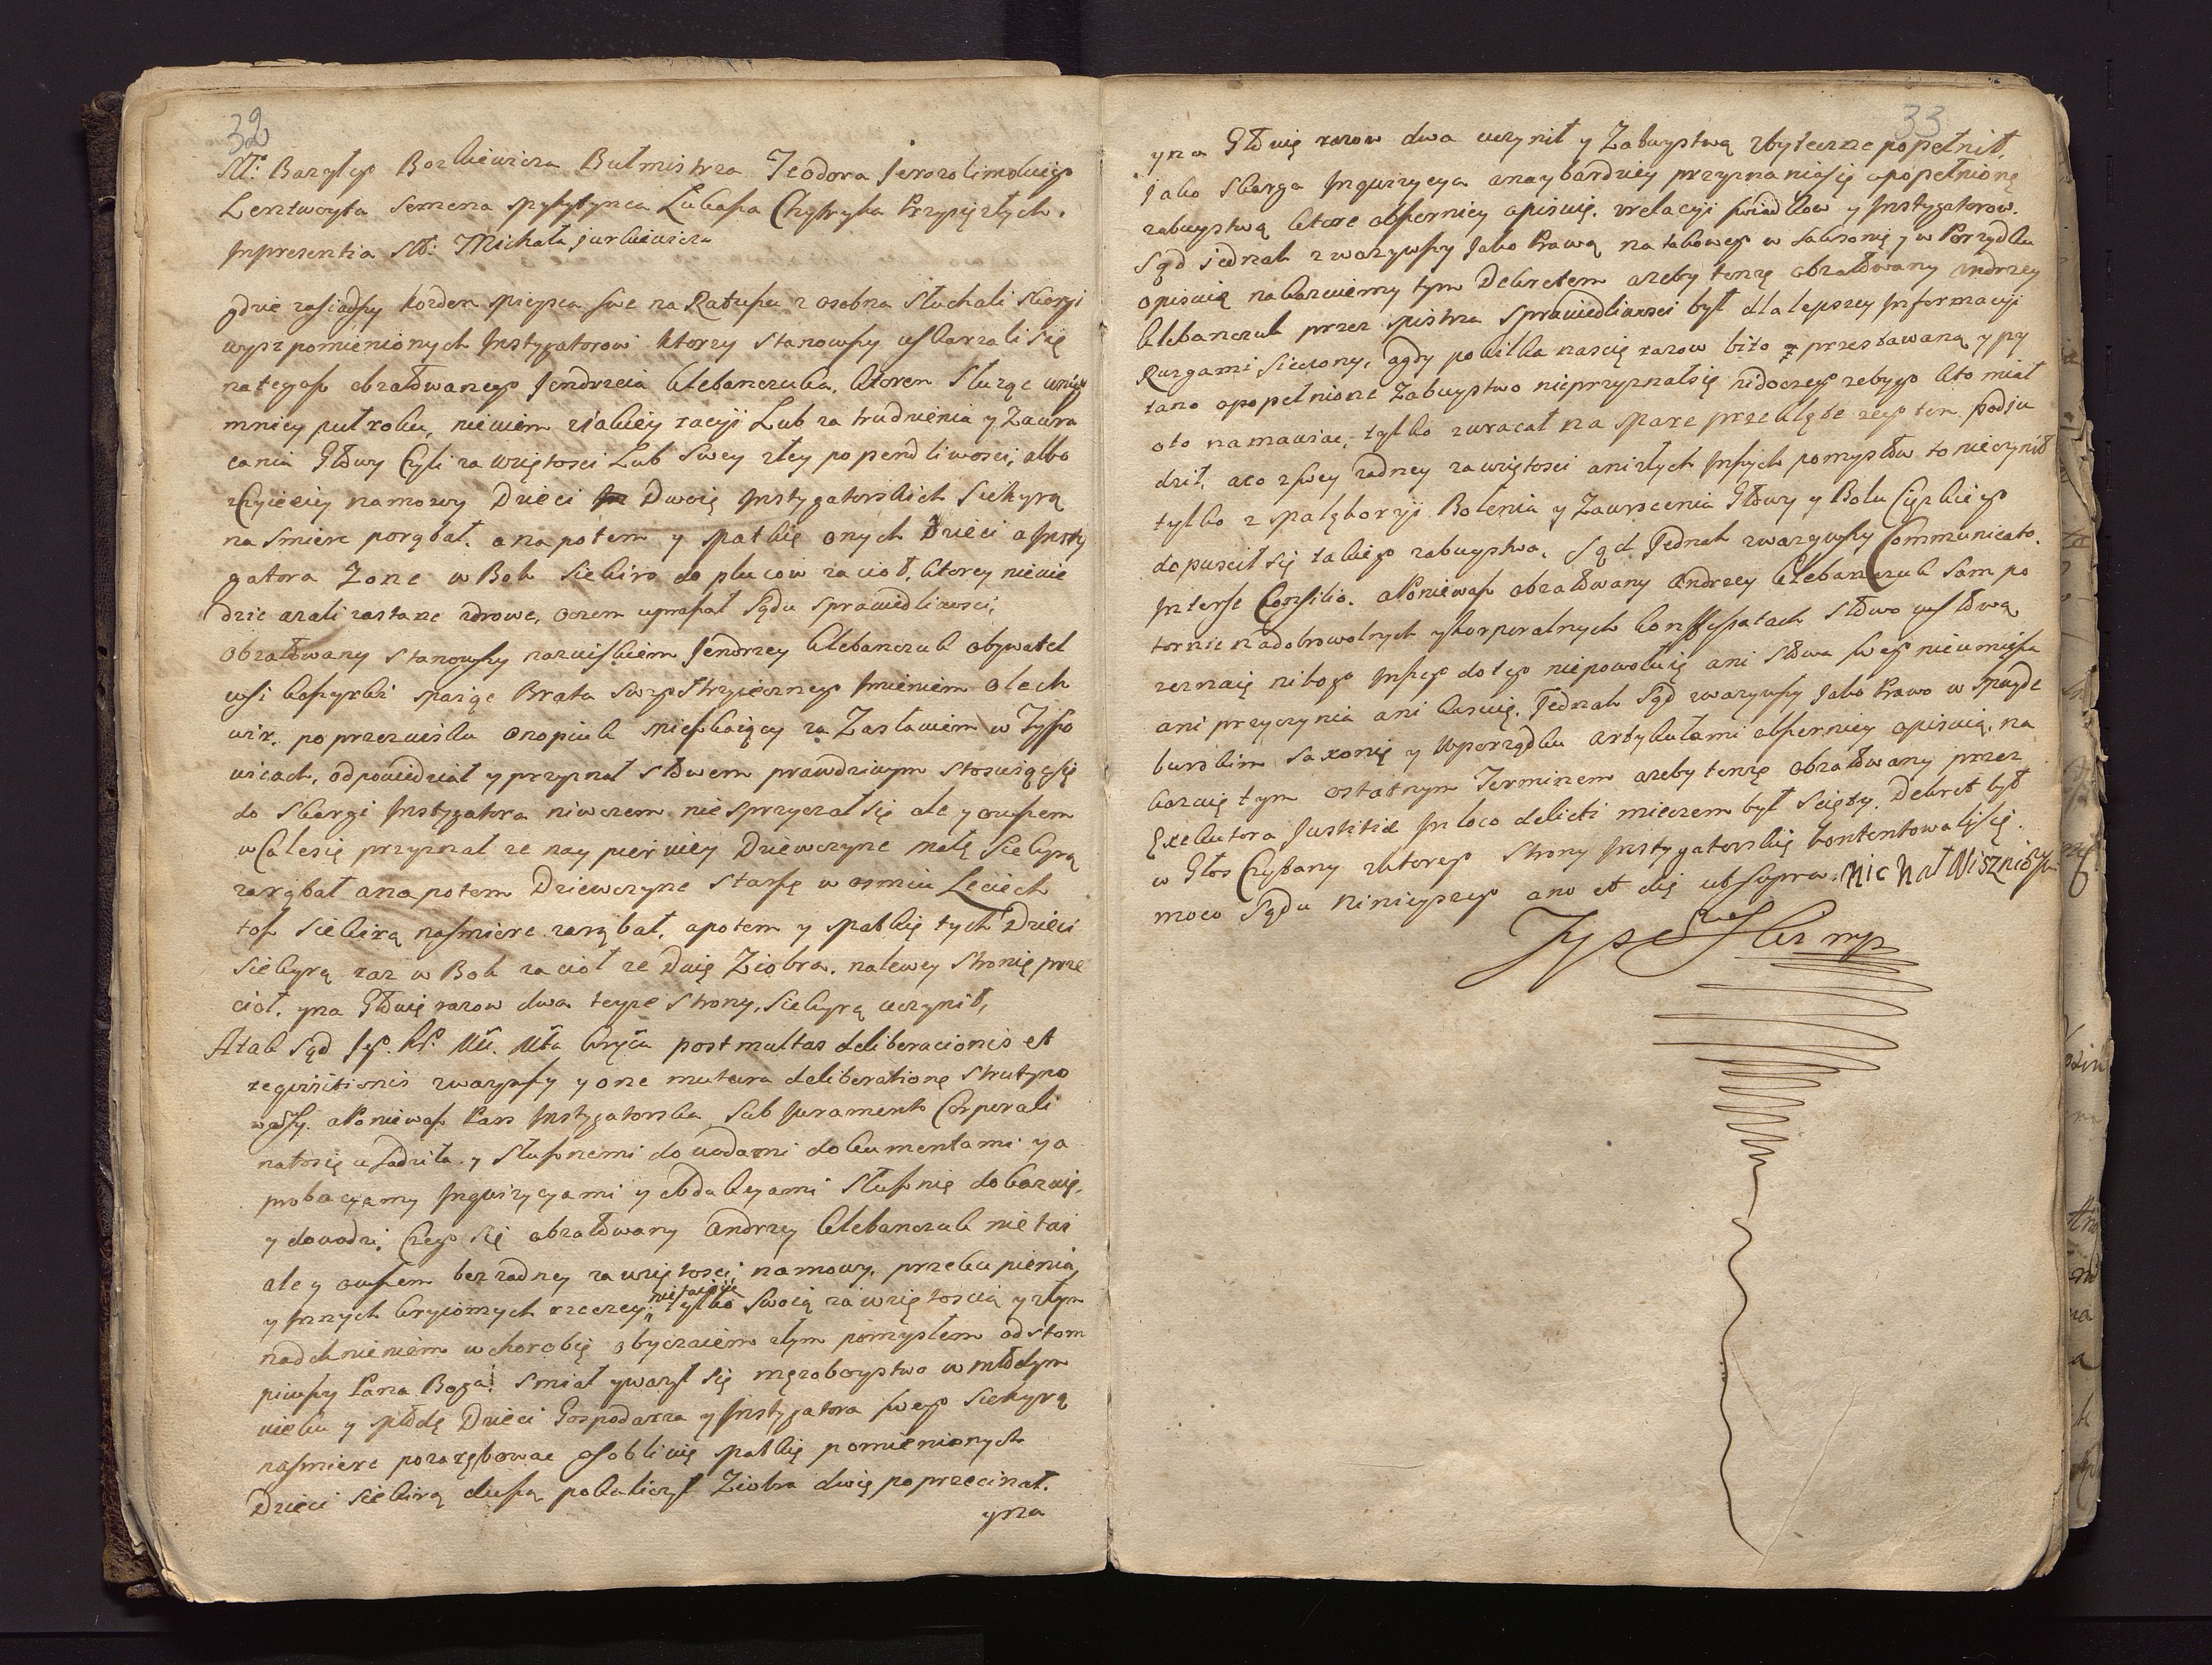 32
Sł: Bazylego Bozkiewicza Bulmistrza Teodora Jerozolimskiego
Lentwoyta Semena Łukasza Przysięzłych.
Inpresentia Sł: Michała Jurkiewicza
gdzie zasiadszy kozden mieysca swe na Ratuszu z osobna Słuchali Skargi
wyszpomienionych Instygatorow ktorzy stanowszy uskarzali się
na tegosz obzałowanego Jendrzeia Klebanczuka, ktoren Sluząc
mniey puł roku, niewiem ziakiey racyji Lub za trudnienia y Zawra
cania Głowy Cyli zawziętosci Lub Swey złey popendliwosci, albo
z Czyieiey namowy Dzieci Dwoię Instygatorskich Siekyrą
na smierc porąbał. a napotem y matkię onych Dzieci a Insty
gatora Zone w Bok Siekiro do płucow zacioł, ktorey niewie
dzie azali zastane zdrowe, oczem upraszał Sądu Sprawiedliwosci,
Obzałowany Stanowszy nazwiskiem Jendrzey Klebanczuk obywatel
wsi Brata Swego Stryiecznego Imieniem Olech
poprzezwisku Onopiuk mieszkaiący za Zasławiem w
wicach, odpowiedział y przyznał słowem prawdziwym stosuiąc się
do Skargi Instygatora niwczem nie sprzyczał się ale y owszem
w Calesię przyznał ze nay pierwiey Dziewczyne małę Siekyrą
zarąbał a napotem Dziewczyne Starszę w osmiu Leciech
tosz Siekirą nasmierc zarąbał, apotem y matkię tych Dzieci
Siekyrą raz w Bok zacioł ze Dwię Ziobra, nalewey stronię prze
cioł, yna Głowię razow dwa teyze strony, Siekyrą uczynił,
Atak Sąd post multas deliberacionis et
requisitionis zwazywszy y one matura deliberationę Strutyno
wawszy. aPoniewasz Pars Instygatorska Sub Iuramento Corporali
natosię usadziła y Słusznemi dowodami dokumentami y a
probacyamy Inquizycyami y obdukcyami Słusznię dokazuię,
y dowodzi, Czego Się obzałowany Andrzey Klebanczuk nie tai
ale y owszem bez zadney zawziętosci, namowy, przekupienia,
y Innych kryiomych rzeczey, tylko Swoią zawziętoscią y złym
nadchnieniem w chorobię obyczaiem złym pomysłem odstom
piwszy Pana Boga! Smiał ywazył się męzobuystwo w młodym
wieku y płodę Dzieci Gospodarza y Instygatora swego Siekyrą
nasmierc pozarębowac osobliwię matkię pomienionych
Dzieci Siekirą duszą pokaliczył Ziobra dwię poprzecinał.
yna
33
yna Głowię razow dwa uczynił y Zabuystwą zbyteczne popełnił,
Jako Skarga Inquizycya anaybardziey przyznaniasię opopełnionę
zabuystwą ktore obszerniey opisuię. zrelacyji swiadkow y Instygatorow.
Sąd iednak zwazywszy Jako Prawą na takowego w Saksonię y w Porządku
opisuią nakazuiemy tym Dekretem azeby tenzę obzałowany Andrzey
Klebanczuk przez mistrza Sprawiedliwosci był dla lepszey Informacyji
Ruzgami Sieczony, agdy pokilka nascię razow bito y przestawaną y py
tano opopełnione Zabuystwo nieprzyznałsię nidoczego zebygo kto miał
oto namawiac, tylko zwracał na mare przeklęte zego ten podsu
dził, aco zswey zadney zawziętosci anizłych Inszych pomysłow to nieczynił
tylko z Bolenia y Zawrocenia Głowy y Bolu Cięzkiego
dopuscił się takiego zabuystwa. Sąd Jednak zwazywszy Communicato
Interse Consilio. aPoniewasz obzałowany Andrzey Klebanczuk Sam po
tornie nadobrowolnych ykorporalnych Słowo wsłową
zeznaię nikogo Inszego dotego niepowołuię ani Słowa swego nieumieysza
ani przyczynia ani kasuię. Jednak Sąd zwazywszy Jako Prawo w Magde
burskim Saxonię y Wporządku Artykułami obszerniey opisuią, na
kazuię tym ostatnym Terminem azeby tenzę obzałowany przez
Exekutora Justitiæ In loco delicti mieczem był Scięty. Dekret był
w Głos Czytany zktorego Strony Instygatorskię kontentowalysię.
moco Sądu Niniyszego ano et die ut supra.